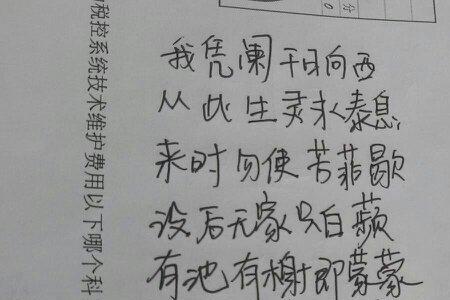 分
0
税控系统技术维护费用以下哪个科
我凭阑干日向西
从此生灵求泰息
来时勿使苦菲歇
没后无家只白蘋
有池有榭即蒙蒙